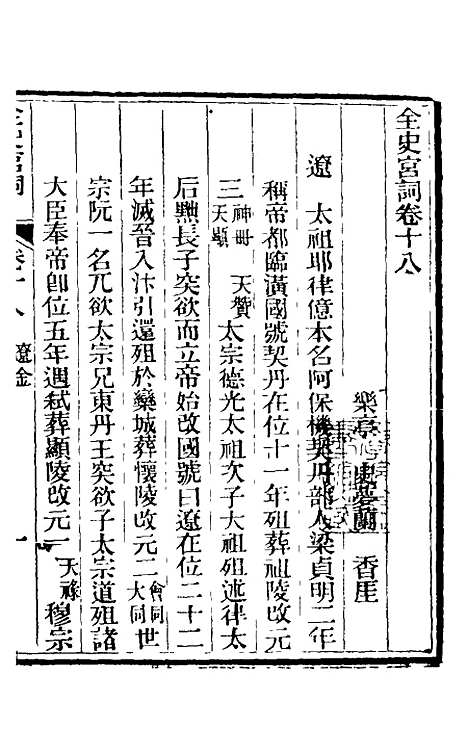 全史宮詞卷十八
樂亭 史夢蘭 香厓
遼 太祖耶律億本名阿保機契丹部人梁貞明二年
稱帝都臨潢國號契丹在位十一年殂葬祖陵改元
三 神冊 天贊 天顯 太宗德光太祖次子大祖殂述律太
后黜長子突欲而立帝始改國號曰遼在位二十二
年滅晉入汴引還殂於欒城葬懷陵改元二 會同 大同 世
宗阮一名兀欲太宗兄東丹王突欲子太宗道殂諸
大臣奉帝卽位五年遇弒葬顯陵改元一 天祿 穆宗
卷十八 遼金 一